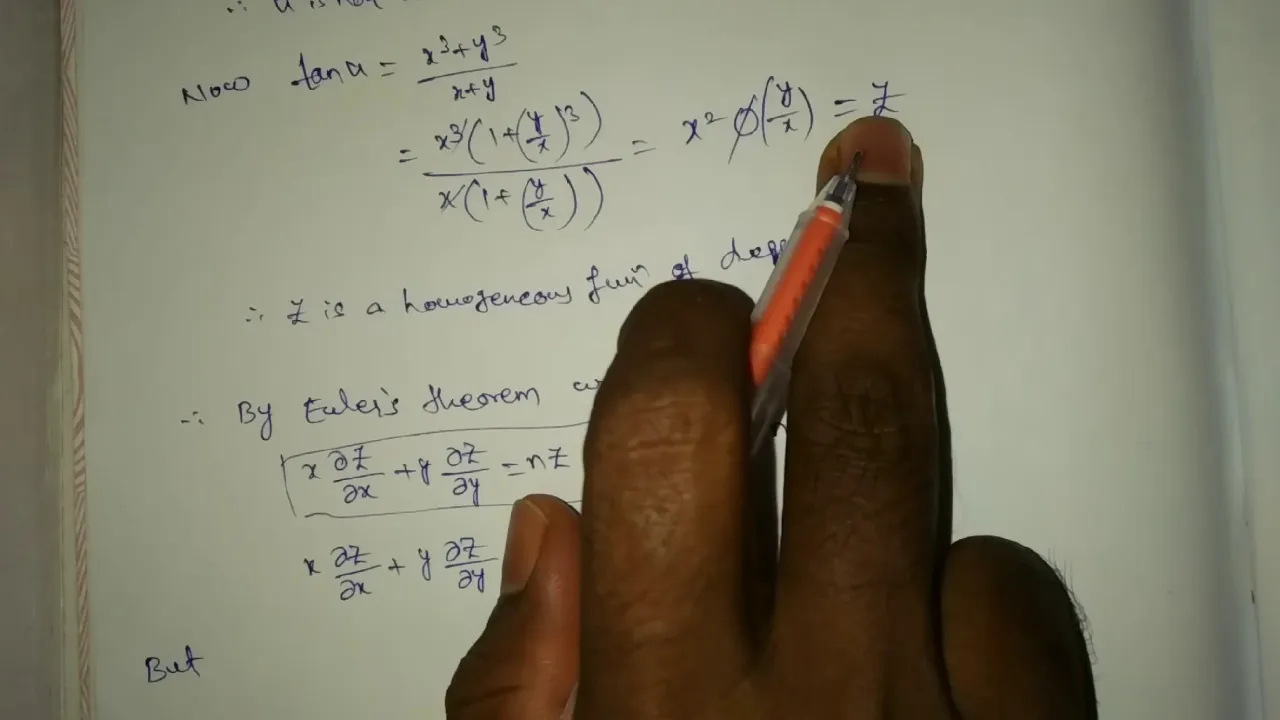 ∴ u is
Now tan u = x³+y³ / x+y
= x³(1+(y/x)³) / x(1+(y/x)) = x² ϕ(y/x) = Z
∴ Z is a homogeneous funⁿ of
∴ By Euler's theorem
x ∂Z/∂x + y ∂Z/∂y = nZ
x ∂Z/∂x + y ∂Z/∂y
But